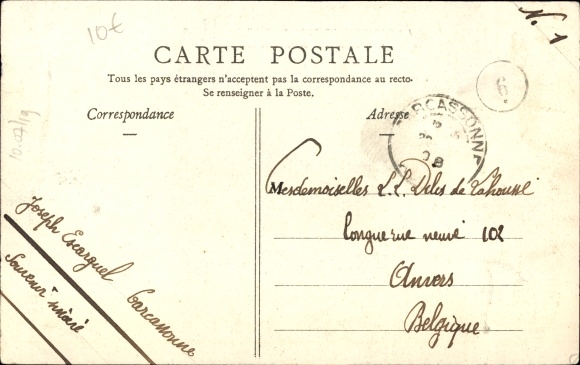 10€
N. 1
CARTE POSTALE
Tous les pays étrangers n'acceptent pas la correspondance au recto.
Se renseigner à la Poste.
6
Correspondance
Adresse
CARCASSONNE
10.07/19
Mesdemoiselles L.L. de
longue rue neuve 102
Anvers
Belgique
Joseph Escarguel Carcassonne
Souvenir